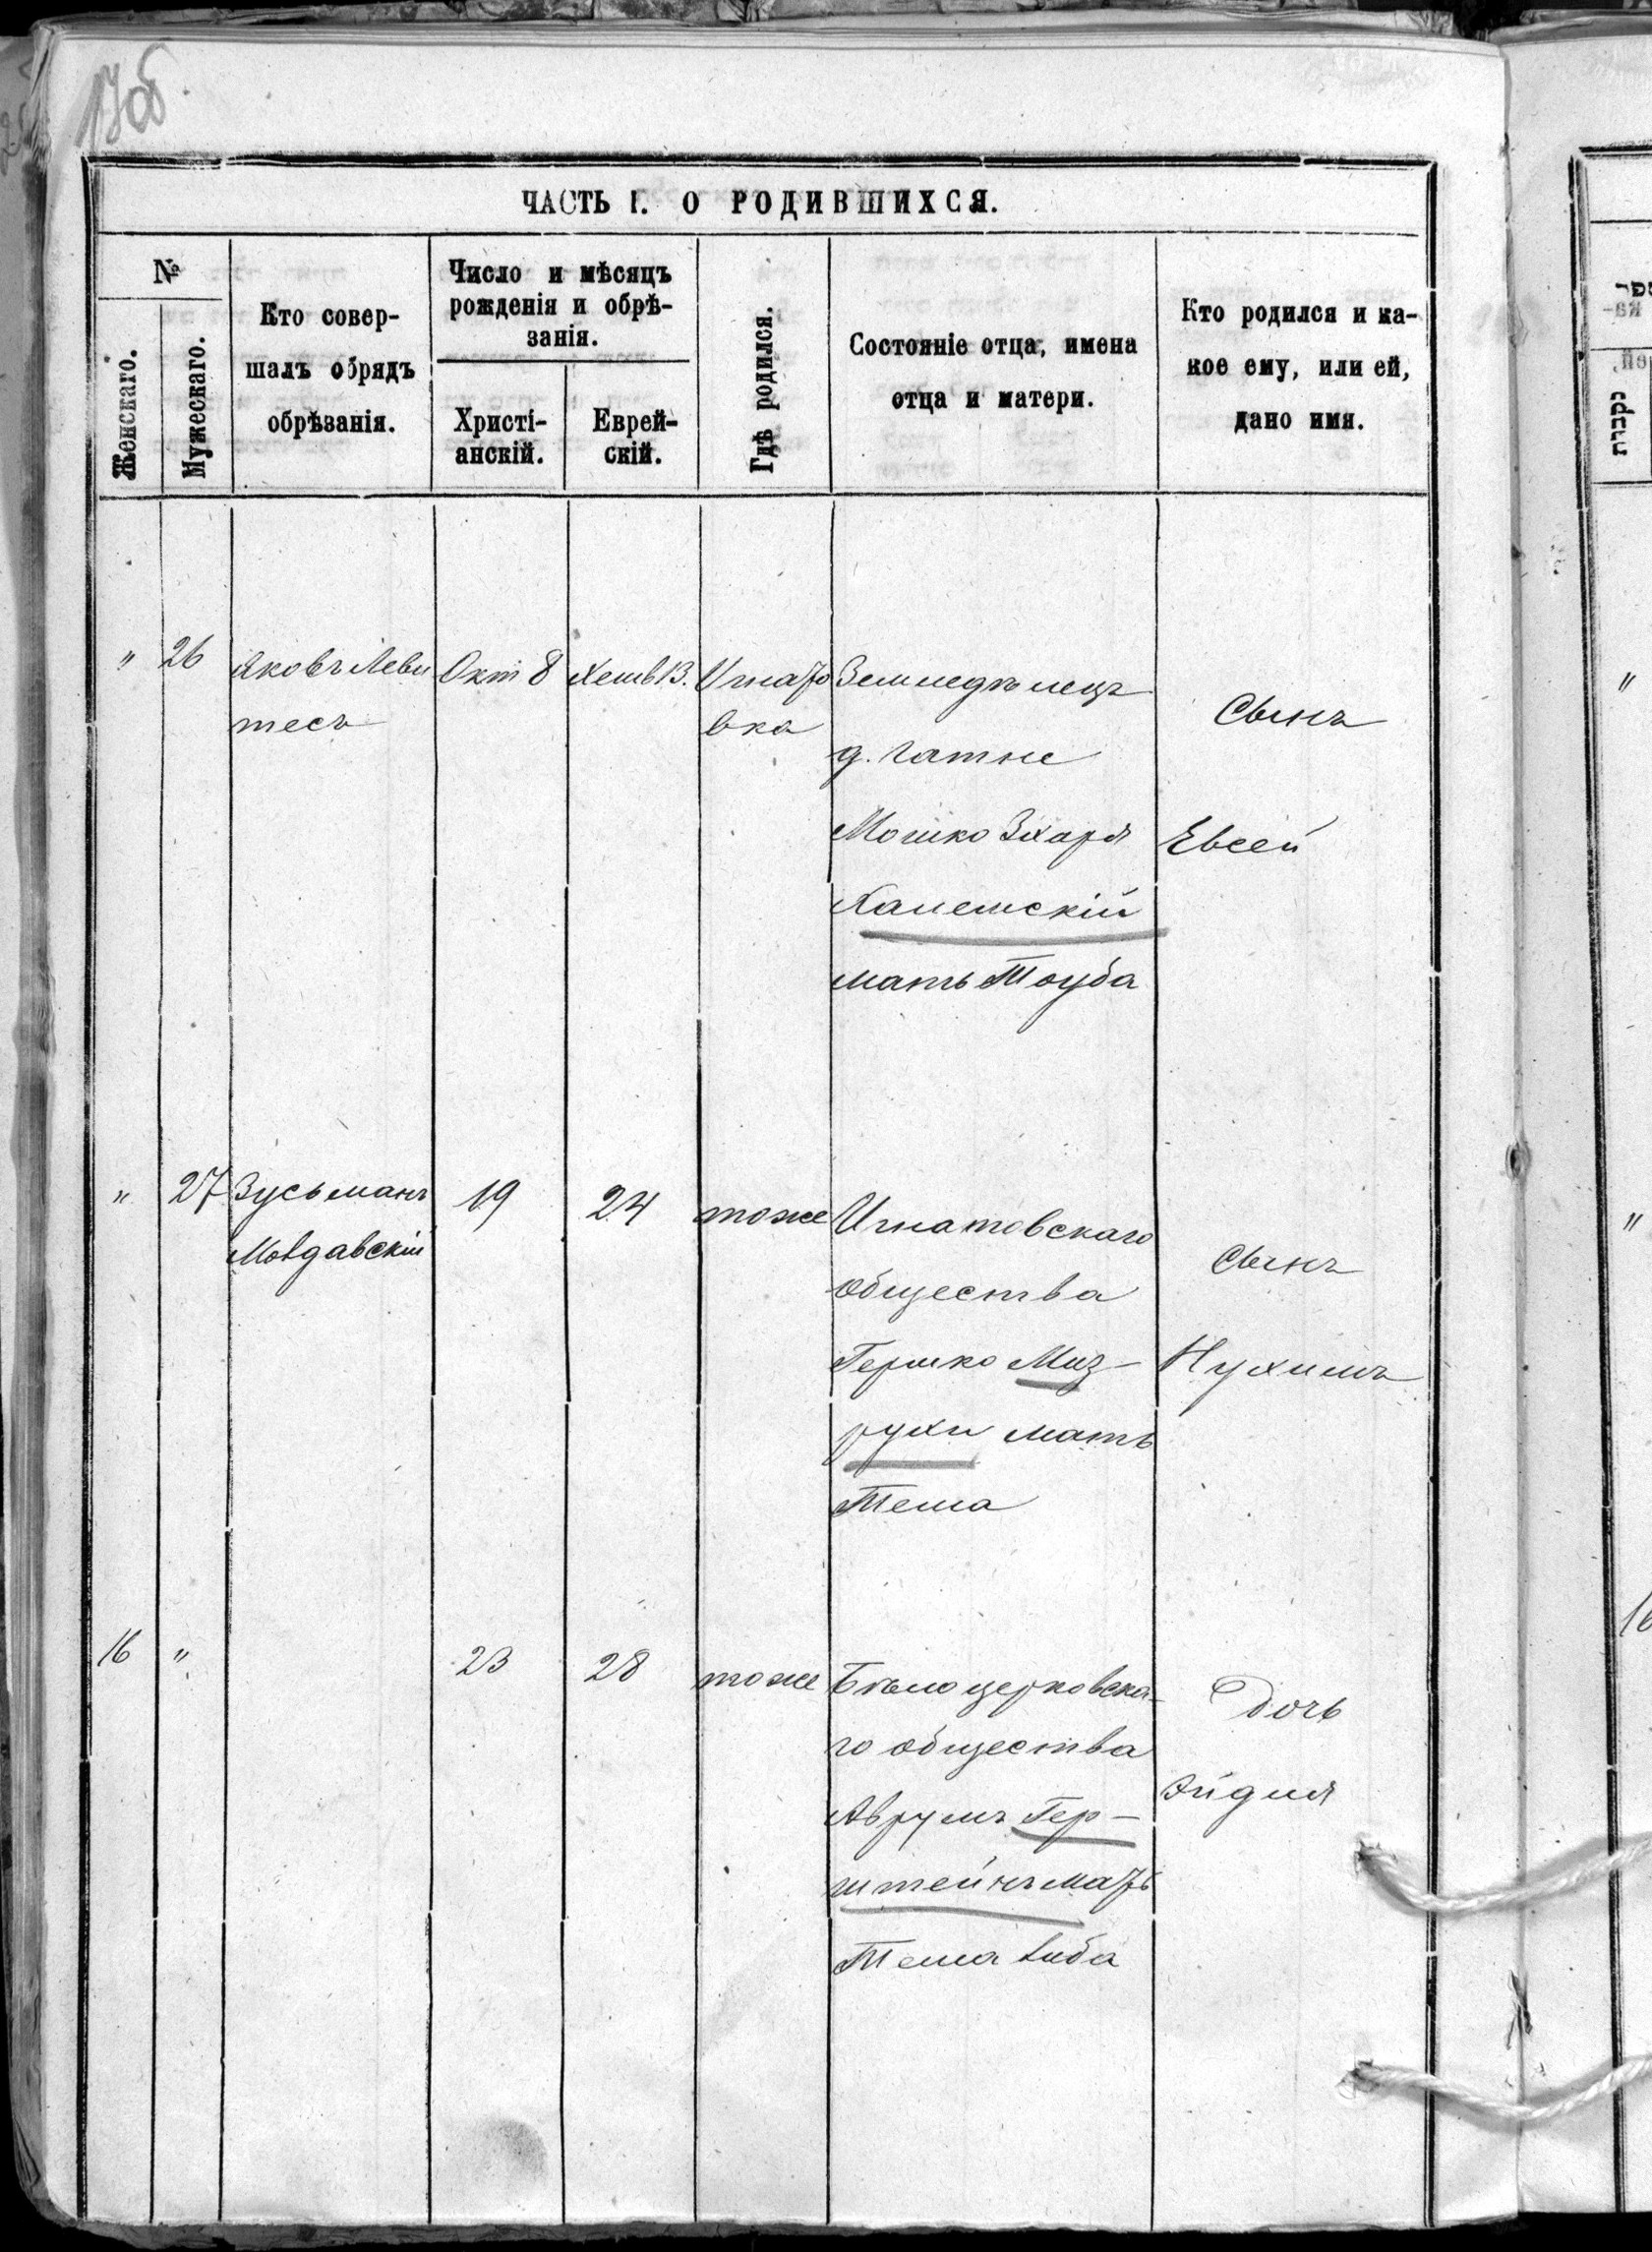 17об
ЧАСТЬ I. О РОДИВШИХСЯ.
№
Женскаго.
Мужескаго.
Кто совер-
шалъ обрядъ
обрѣзанія.
Число и мѣсяцъ
рожденія и обрѣ-
занія.
Христі-
анскій.
Еврей-
скій.
Гдѣ родился.
Состояніе отца, имена
отца и матери.
Кто родился и ка-
кое ему, или ей,
дано имя.
" 26
Яковъ Леви
тесъ
Окт 8
Хешв 13.
Игнато
вка
Земледѣлецъ
д. Гатне
Мошко Зхаря
мать Тоуба
Сынъ
Евсей
" 27
Зусьманъ
Мовдавскій
19
24
тоже
Игнатовскаго
общества
Гершко Миз-
рухи мать
Тема
Сынъ
Нухимъ
16 "
23
28
тоже
Бѣлоцерковска-
го общества
Аврумъ Гер-
штейнъ мать
Тема Либа
Дочь
Эйдля
"
"
16
נקבות